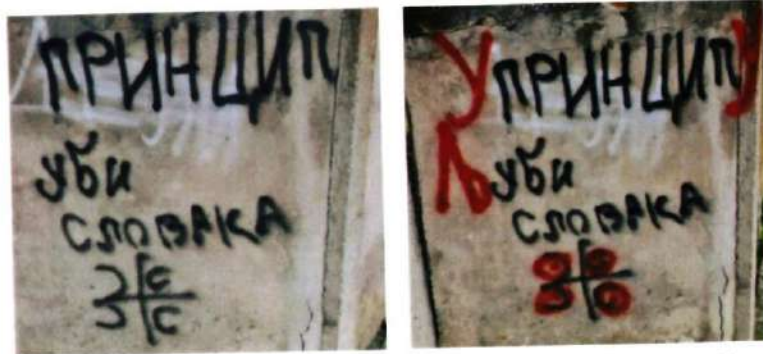 ПРИНЦИП
уби
СЛОВАКА
С
С
У ПРИНЦИПУ
Љуби
СЛОВАКА